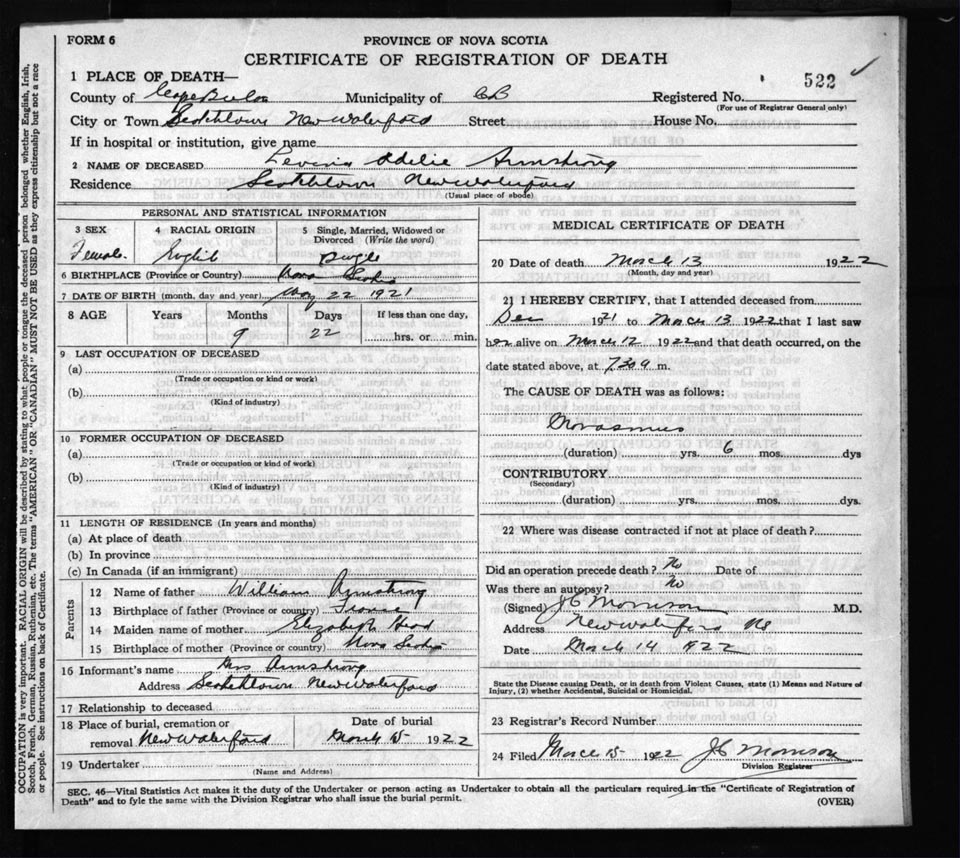 FORM 6
PROVINCE OF NOVA SCOTIA
CERTIFICATE OF REGISTRATION OF DEATH
522 ✓
1 PLACE OF DEATH—
County of Cape Breton Municipality of CB Registered No.
(For use of Registrar General only)
City or Town Scotchtown New Waterford Street House No.
If in hospital or institution, give name
2 NAME OF DECEASED Levina Odelie Armstrong
Residence Scotchtown New Waterford
(Usual place of abode)
PERSONAL AND STATISTICAL INFORMATION
3 SEX 4 RACIAL ORIGIN 5 Single, Married, Widowed or Divorced (Write the word)
Female English Single
6 BIRTHPLACE (Province or Country) Nova Scotia
7 DATE OF BIRTH (month, day and year) May 22 1921
8 AGE Years Months Days If less than one day,
9 22 hrs. or min.
9 LAST OCCUPATION OF DECEASED
(a)
(Trade or occupation or kind or work)
(b)
(Kind of industry)
10 FORMER OCCUPATION OF DECEASED
(a)
(Trade or occupation or kind of work)
(b)
(Kind of industry)
11 LENGTH OF RESIDENCE (In years and months)
(a) At place of death
(b) In province
(c) In Canada (if an immigrant)
Parents
12 Name of father William Armstrong
13 Birthplace of father (Province or country)
14 Maiden name of mother Elizabeth Head
15 Birthplace of mother (Province or country) Nova Scotia
16 Informant's name Mrs Armstrong
Address Scotchtown New Waterford
17 Relationship to deceased
18 Place of burial, cremation or Date of burial
removal New Waterford March 15 1922
19 Undertaker
(Name and Address)
MEDICAL CERTIFICATE OF DEATH
20 Date of death March 13 1922
(Month, day and year)
21 I HEREBY CERTIFY, that I attended deceased from
Dec 1921 to March 13 1922 that I last saw
her alive on March 12 1922 and that death occurred, on the
date stated above, at m.
The CAUSE OF DEATH was as follows:
Marasmus
(duration) yrs. 6 mos. dys
CONTRIBUTORY
(Secondary)
(duration) yrs. mos. dys.
22 Where was disease contracted if not at place of death?
Did an operation precede death? No Date of
Was there an autopsy? No
(Signed) J C Morrison M.D.
Address New Waterford NS
Date March 14 1922
State the Disease causing Death, or in death from Violent Causes, state (1) Means and Nature of
Injury, (2) whether Accidental, Suicidal or Homicidal.
23 Registrar's Record Number
24 Filed March 15 1922 J C Morrison
Division Registrar
SEC. 46—Vital Statistics Act makes it the duty of the Undertaker or person acting as Undertaker to obtain all the particulars required in the "Certificate of Registration of
Death" and to fyle the same with the Division Registrar who shall issue the burial permit.
(OVER)
OCCUPATION is very important. RACIAL ORIGIN will be described by stating to what people or tongue the deceased person belonged whether English, Irish,
Scotch, French, German, Russian, Ruthenian, etc. The terms "AMERICAN" OR "CANADIAN" MUST NOT BE USED as they express citizenship but not a race
or people. See instructions on back of Certificate.